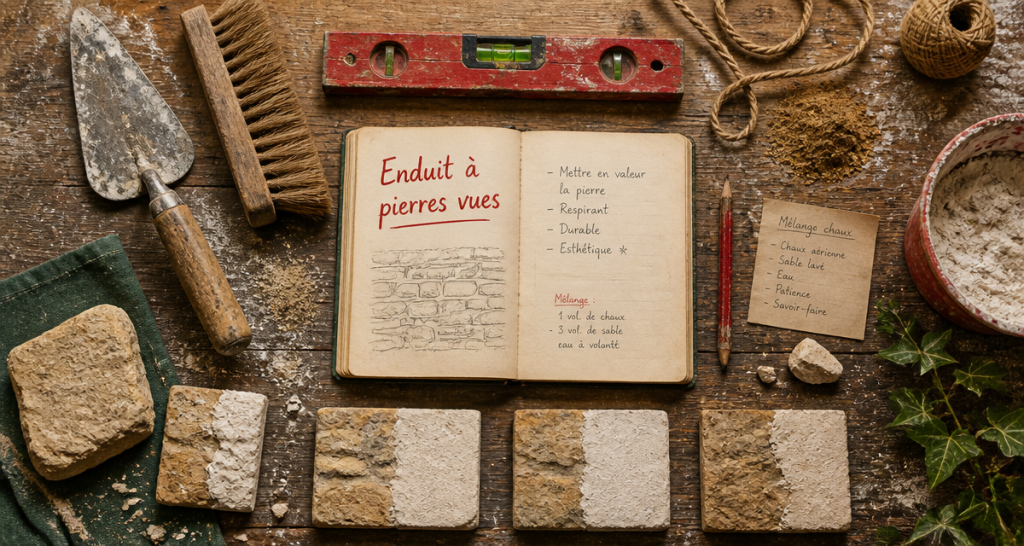 Enduit à
pierres vues
- Mettre en valeur
la pierre
- Respirant
- Durable
- Esthétique *
Mélange :
1 vol. de chaux
- 3 vol. de sable
eau à volontt
Mélange chaux
- Chaux aérienne
- Sable lavé
- Eau
- Patience
- Savoir-faire